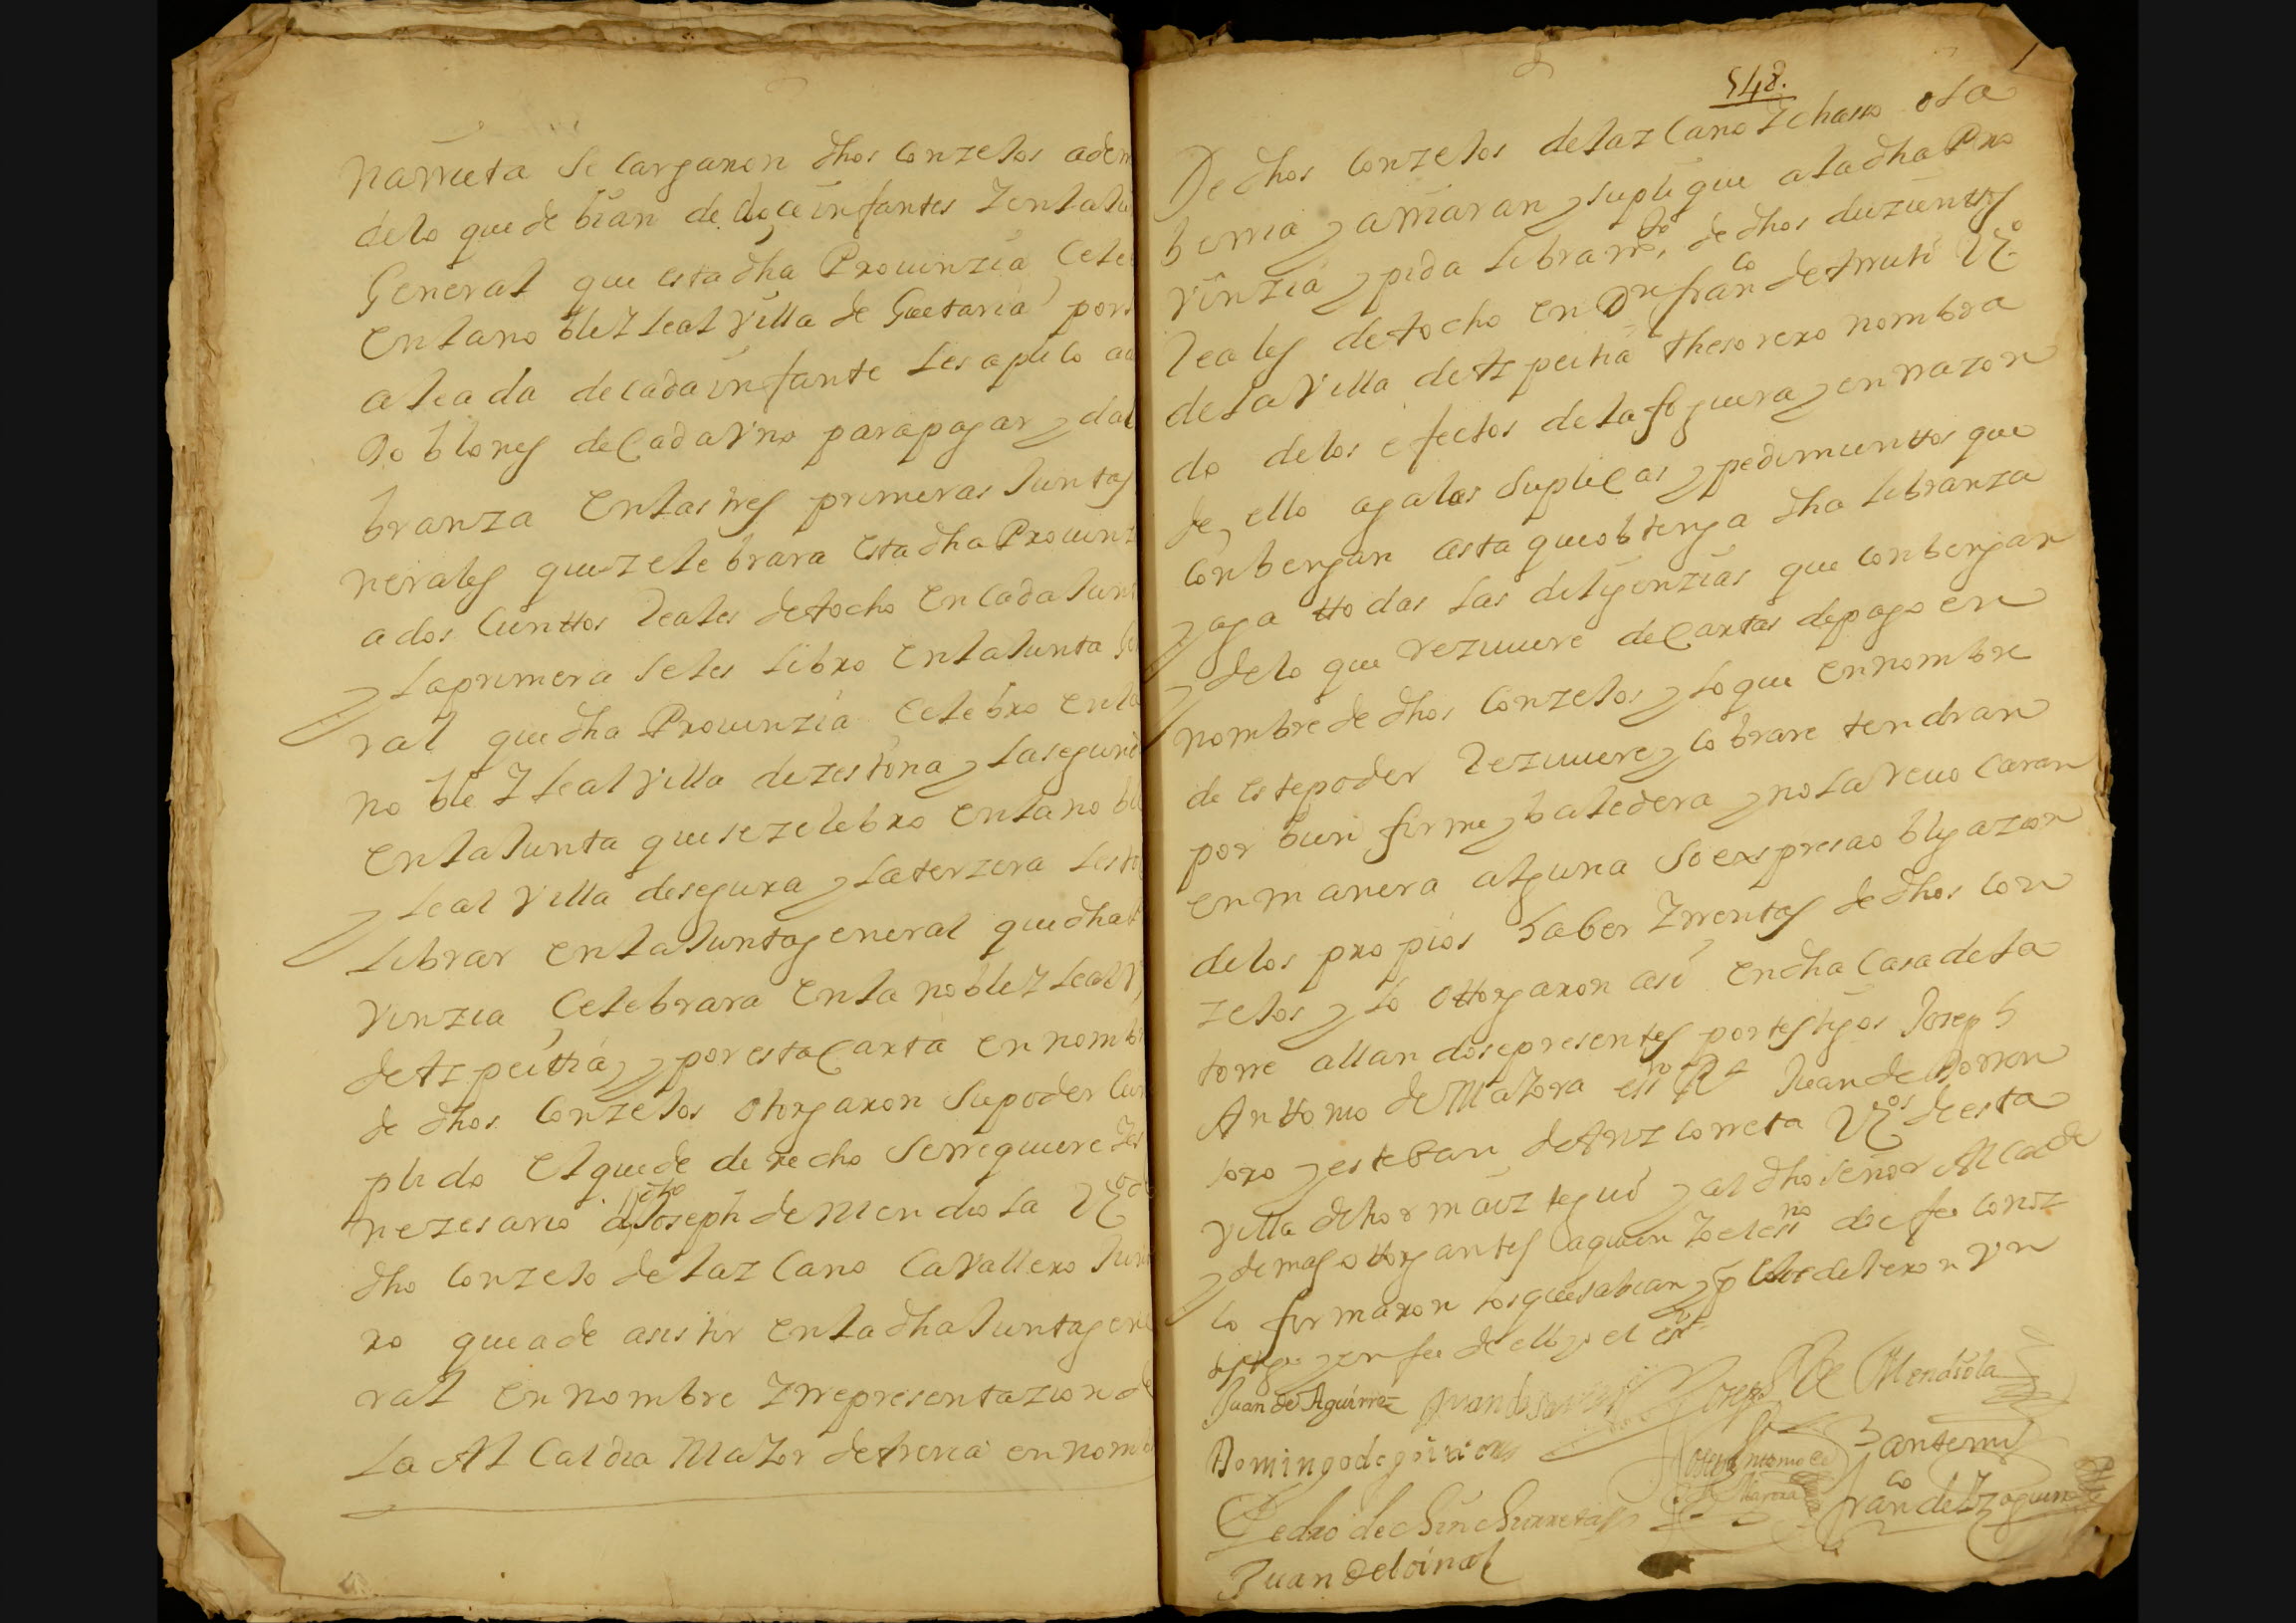 narrieta se cargaron dhos Conzejos adem
delo que debian de doce infantes Y en la Ju
General que esta dha Prouinzia Cele
en la noble Y leal villa de Guetaria por
aleada de cada infante les aplico a
Doblones de Cada Vno para pagar y da
branza en las tres primeras Juntas
nerales que zelebrara esta dha Prouinz
a dos Cienttos Reales de vocho en cada Junt
y la primera se les libro en la Junta Ge
ral que dha Prouinzia Celebro en la
noble Y leal villa de zestona y la segund
en la Junta que se zelebro en la nobl
y leal villa de segura y la terzera les
librar en la Junta general que dha
vinzia Celebrara en la noble Y leal V
de Azpeittia y por esta Carta en nomb
de dhos Conzejos otorgaron su poder Cum
plido el que de derecho se rrequiere Y es
nezesario a dho Joseph de Mendiola Vzo de
dho Conzejo de lazCano Cavallero Jun
ro que a de asistir en la dha Junta gene
ral en nombre Y rrepresentazion de
la Al Caldia Maior de Areria en nom
548.
De dhos Conzejos de lazCano Ychasso ola
berria y arriaran y suplique a la dha Pro
vinzia y pida libramto de dhos duzientos
Reales de vocho en Dn franco de Arruti Vzo
de la Villa de Azpeitia thesorero nombra
do de los efectos de la foguera y en rrazon
de ello aga las suplicas y pedimienttos que
Conbengan asta que obtenga dha libranza
y aga ttodas las diligenzias que Conbengan
y de lo que rezuiere de Cartas de pago en
nombre de dhos Conzejos y lo que en nombre
de este poder Rezuiere y cobrare tendran
por bien firme y baledera y no la reuocaran
en manera alguna so expresa obligazion
de los propios haber Y rrentas de dhos Con
zejos y lo ottorgaron asi en dha Casa de la
torre allandose presentes por testigos Joseph
Anttonio de Maiora essno Rl Juan de Borron
soro y esteban de Arizcorreta Vzos de esta
Villa de hormaiztegui y al dho señor Alcalde
y demas ottorgantes a quien Yo el essno doi fee Conoz
co firmaron los que sabian y por los que dijeron vn
testigo y en fee de ello yo el essno
Juan de Aguirre Joseph de Mendiola
Domingo de goiti
Joseph Antonio de Maiora
Pedro de Chinchurreta
Ante mi
Franco de Yzaguirre
Juan de loinaz